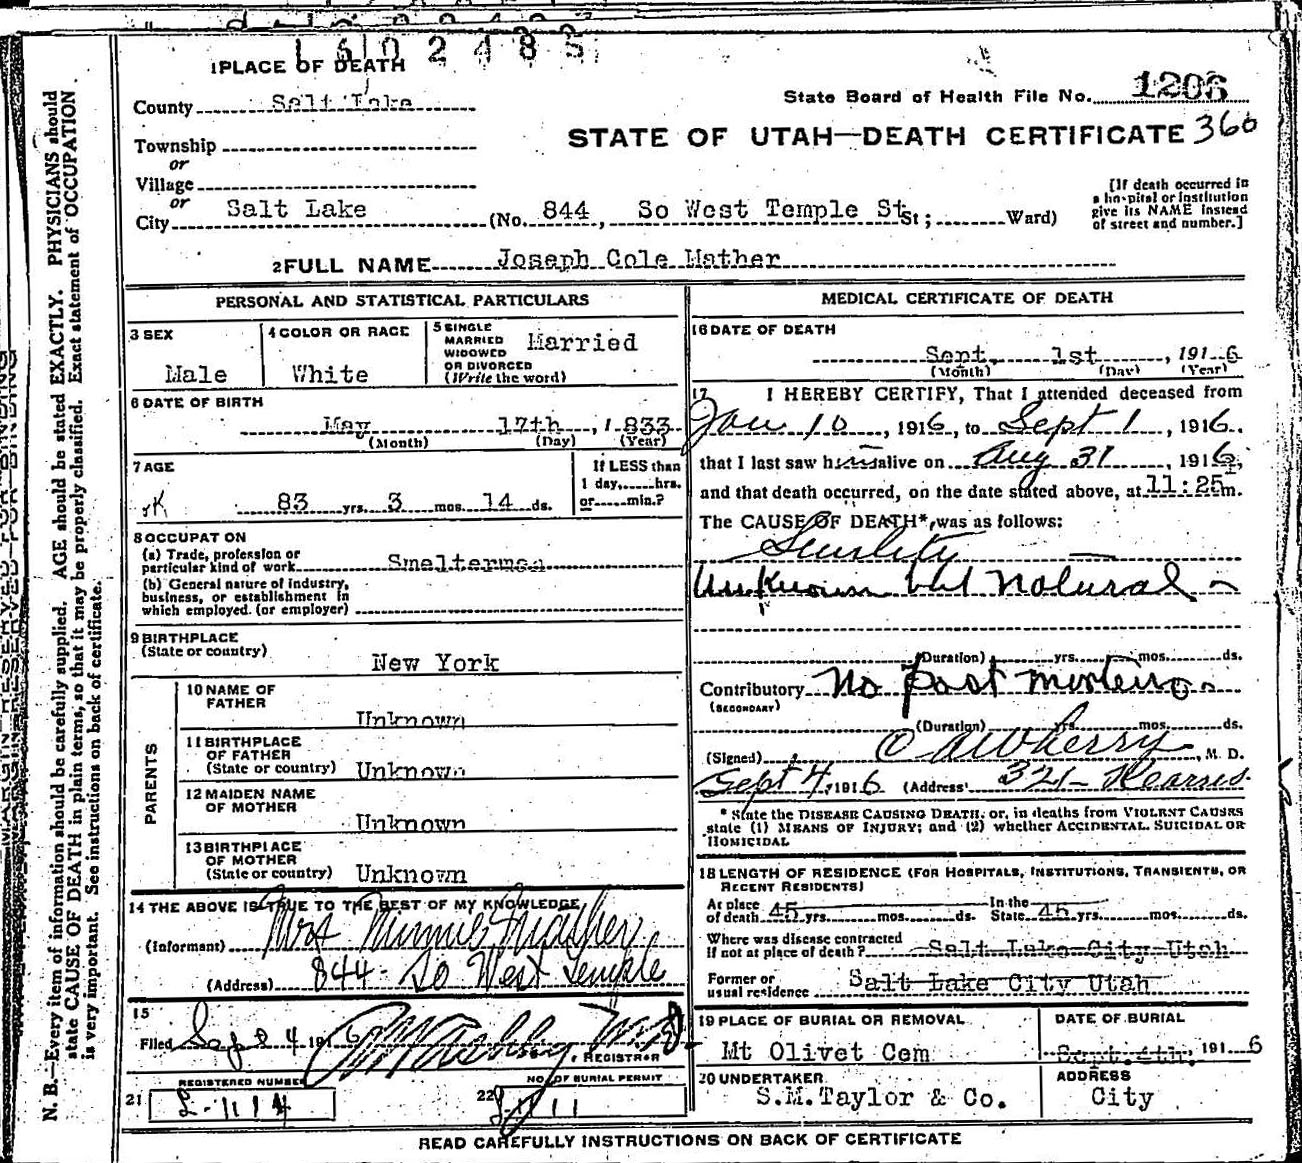 1602485
1 PLACE OF DEATH
County Salt Lake
State Board of Health File No. 1206
Township
STATE OF UTAH—DEATH CERTIFICATE 360
or
Village
or
City Salt Lake (No. 844, So West Temple St St; Ward)
[If death occurred in
a hospital or institution
give its NAME instead
of street and number.]
2 FULL NAME Joseph Cole Mather
PERSONAL AND STATISTICAL PARTICULARS
3 SEX
Male
4 COLOR OR RACE
White
5 SINGLE
MARRIED
WIDOWED
OR DIVORCED
(Write the word)
Married
6 DATE OF BIRTH
May 17th, 1833
(Month) (Day) (Year)
7 AGE
83 yrs. 3 mos. 14 ds.
If LESS than
1 day, hrs.
or min.?
8 OCCUPATION
(a) Trade, profession or
particular kind of work Smelterman
(b) General nature of industry,
business, or establishment in
which employed. (or employer)
9 BIRTHPLACE
(State or country)
New York
PARENTS
10 NAME OF
FATHER
Unknown
11 BIRTHPLACE
OF FATHER
(State or country) Unknown
12 MAIDEN NAME
OF MOTHER
Unknown
13 BIRTHPLACE
OF MOTHER
(State or country) Unknown
14 THE ABOVE IS TRUE TO THE BEST OF MY KNOWLEDGE
(Informant) Mrs Minnie Mather
(Address) 844 - So West Temple
15
Filed Sep 4 1916 M.D.
, REGISTRAR
REGISTERED NUMBER
21 L-1114
NO. OF BURIAL PERMIT
22
MEDICAL CERTIFICATE OF DEATH
16 DATE OF DEATH
Sept. 1st, 1916
(Month) (Day) (Year)
17 I HEREBY CERTIFY, That I attended deceased from
Jan 10, 1916, to Sept 1, 1916.
that I last saw him alive on Aug 31, 1916,
and that death occurred, on the date stated above, at 11:25 m.
The CAUSE OF DEATH*, was as follows:
Senility
Unknown but Natural
(Duration) yrs. mos. ds.
Contributory No post mortem
(SECONDARY)
(Duration) yrs. mos. ds.
(Signed) , M. D.
Sept 4, 1916 (Address) 321- Kearns.
* State the DISEASE CAUSING DEATH, or, in deaths from VIOLENT CAUSES
state (1) MEANS OF INJURY; and (2) whether ACCIDENTAL, SUICIDAL OR
HOMICIDAL
18 LENGTH OF RESIDENCE (FOR HOSPITALS, INSTITUTIONS, TRANSIENTS, OR
RECENT RESIDENTS)
At place
of death 45 yrs. mos. ds.
In the
State 45 yrs. mos. ds.
Where was disease contracted
if not at place of death? Salt Lake City Utah
Former or
usual residence Salt Lake City Utah
19 PLACE OF BURIAL OR REMOVAL
Mt Olivet Cem
DATE OF BURIAL
Sept. 4th, 1916
20 UNDERTAKER
S.M.Taylor & Co.
ADDRESS
City
READ CAREFULLY INSTRUCTIONS ON BACK OF CERTIFICATE
N. B.—Every item of information should be carefully supplied. AGE should be stated EXACTLY. PHYSICIANS should
state CAUSE OF DEATH in plain terms, so that it may be properly classified. Exact statement of OCCUPATION
is very important. See instructions on back of certificate.